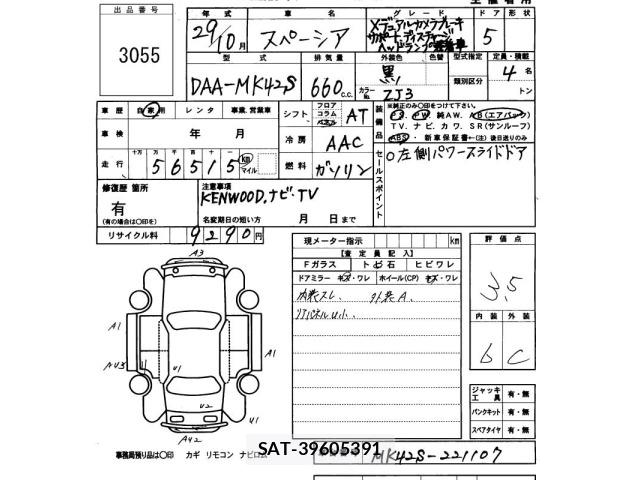 出品番号
3055
年式 車名 グレード ドア 形状
29/10月 スペーシア Xデュアルカメラブレーキ
サポート 5
型式 排気量 外装色 色替 型式指定 定員・積載
DAA-MK42S 660c.c. 黒 類別区分 4名
カラーNo. ZJ3 トン
車歴 自家用 レンタ 事業.営業車 シフト フロア コラム AT
車検 年 月 冷房 AAC
走行 十万 万 千 百 十 56515 km マイル 燃料 ガソリン
装備品
※純正のみ〇印をつけて下さい。
P.S. P.W. 純AW. AB(エアバック)
TV. ナビ. カワ. SR(サンルーフ)
ABS・新車保証書←(注) 後日送りのみ
セールスポイント
○左側パワースライドドア
修復歴 箇所
有
(有の場合は〇印を)
注意事項
KENWOOD.ナビ・TV
名変期日の短い方 月 日まで
リサイクル料 9290円
現メーター指示 km 評価点
【査定員記入】
Fガラス トビ石 ヒビワレ
ドアミラー キズ・ワレ ホイール(CP) キズ・ワレ
内装スレ. 外装A.
リアパネルU小.
3.5
内装 外装
b C
A3
A1
A1
U1
U2
U1
AU2
ジャッキ 工具 有・無
パンクキット 有・無
スペアタイヤ 有・無
事務局預り品は〇印 カギ リモコン ナビロム
SAT-39605391
MK42S-221107